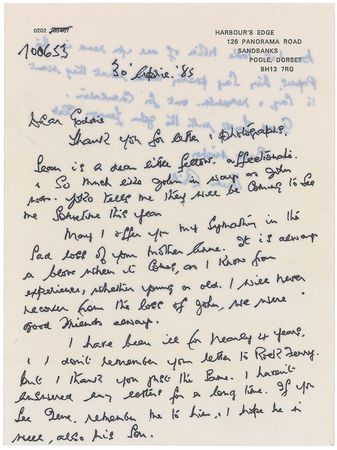 0202
HARBOUR'S EDGE
126 PANORAMA ROAD
SANDBANKS
POOLE, DORSET
BH13 7RG
700653
30' April. '85
Dear Eddie
Thank you for letter & photographs.
Sean is a dear little fellow, affectionate.
& so much like John in ways or John
was. Yoko tells me they will be coming to see
me sometime this year
May I offer you my sympathy in the
sad loss of your mother Anne. It is always
a blow when it comes, as I know from
experience, whether young or old. I will never
recover from the loss of John, we were
good friends always.
I have been ill for nearly 4 years,
& I don't remember your letter to Rock Ferry.
but I thank you just the same. I haven't
answered any letters for a long time. If you
see Gene, remember me to him, & I hope he is
well, also his son.